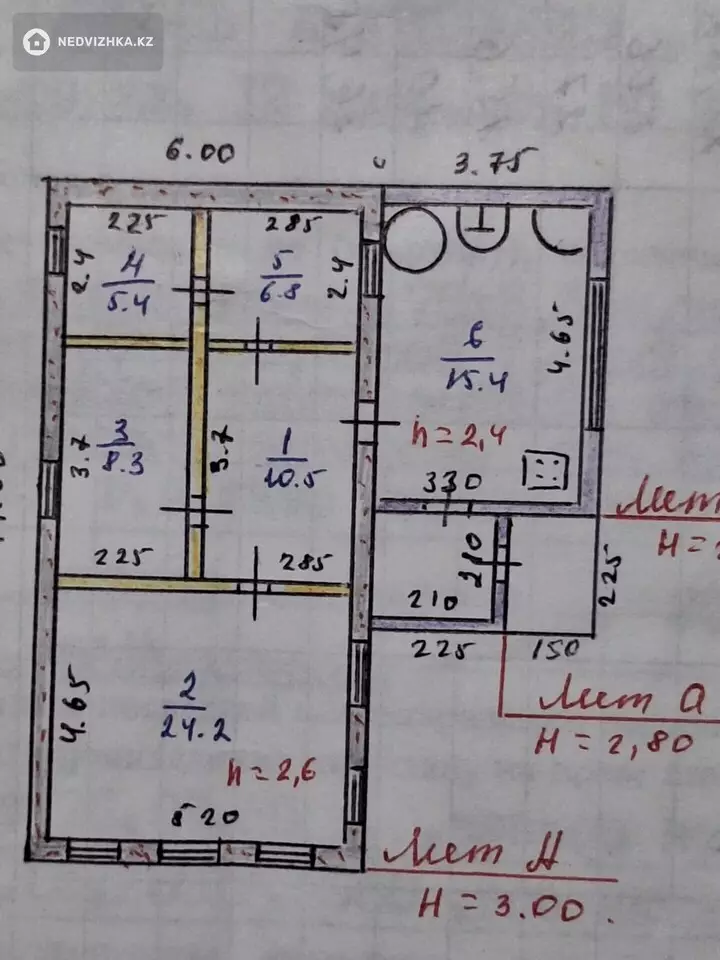 NEDVIZHKA.KZ
6.00
3.75
225
285
2.4
4
5.4
5
6.8
2.4
6
15.4
4.65
h = 2,4
3.7
3
8.3
3.7
1
10.5
330
225
285
210
210
225
225
150
4.65
2
24.2
h = 2,6
5 20
Лит
H =
Лит а
H = 2,80
Лит А
H = 3.00.